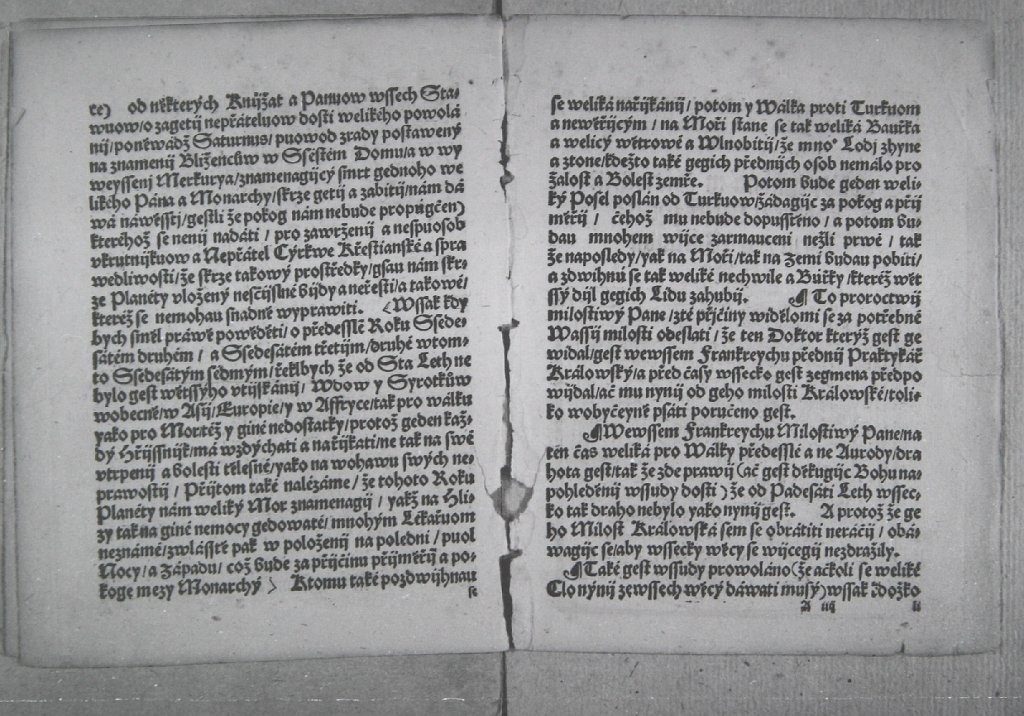 te) od některých Knijžat a Panuow wssech Sta-
wuow/o zagetij nepřáteluow dosti welikého powolá
nij/poněwádž Saturnus/puowod zrady postawený
na znamenij Bliženců w Ssestém Domu/a w wy
weyssenj Merkurya/znamenagijcý smrt gednoho we
likého Pána a Monarchy/skrze getij a zabitij/nám dá
wá náwěsstj/gestli že pokog nám nebude propůgčen)
kteréhož se nenij nadáti / pro zawrženij a nespuosob
vkrutnijkuow a Nepřátel Cýrkwe Křestianské a spra
wedliwosti/že skrze takowý prostředky/gsau nám skr-
ze Planéty vloženy nesčijslné bijdy a neřesti/a takowé/
kteréž se nemohau snadně wyprawiti. Wssak kdy
bych směl práwě powěděti/o předesslé Roku Ssede-
sátém druhém / a Ssedesátém třetijm/druhé wtom-
to Ssedesátým sedmým/řeklbych že od Sta Leth ne
bylo gest wětssýho vtijskánij/ Wdow y Syrotkůw
wobecně/w Asij/Europie/y w Affryce/tak pro wálku
yako pro Mor/též y giné nedostatky/protož geden kaž-
dý Hřijssnijk/má wzdýchati a nařijkati/ne tak na swé
vtrpenij a bolesti tělesné/yako na wohawu swých ne-
prawostij / Přijtom také nalézáme/ že tohoto Roku
Planéty nám weliký Mor znamenagij / yakž na Hli-
zy tak na giné nemocy gedowaté/mnohým Lékařuom
neznámé/zwlásstě pak w položenij na poledni/puol
Nocy/a Západu/ což bude za přijčinu přijměřij a po-
koge mezy Monarchý) Ktomu také pozdwijhnau
se
se weliká nařijkánij/ potom y Wálka proti Turkuom
a newěřijcým/ na Moři stane se tak weliká Bauřka
a welicý wětrowé a Wlnobitij/že mno° Lodj zhyne
a ztone/kdežto také gegich přednijch osob nemálo pro
žalost a Bolest zemře. Potom bude geden weli-
ký Posel poslán od Turkuow/žádagijc za pokog a přij
měřij/ čehož mu nebude dopusstěno/ a potom bu-
dau mnohem wijce zarmauceni nežli prwé / tak
že naposledy/yak na Moři/tak na Zemi budau pobiti/
a zdwihnú se tak weliké nechwile a Búřky/kteréž wět
ssý dijl gegich Lidu zahubij. ¶ To proroctwij
milostiwý Pane/zté přijčiny widělomi se za potřebné
Wassij milosti odeslati/ že ten Doktor kterýž gest ge
widal/gest wewssem Frankreychu přednij Praktykář
Králowský/a před časy wssecko gest zegmena předpo
wijdal/ač mu nynij od geho milosti Králowské/toli-
ko wobyčeyně psáti poručeno gest.
¶Wewssem Frankreychu Milostiwý Pane/na
ten čas weliká pro Wálky předesslé a ne Aurody/dra
hota gest/tak že zde prawij (ač gest děkugijc Bohu na-
pohleděnij wssudy dosti) že od Padesáti Leth wssec-
ko tak draho nebylo yako nynij gest. A protož že ge
ho Milost Králowská sem se obrátiti neráčij/ obá-
wagijc se/aby wssecky wěcy se wijcegij nezdražily.
¶Také gest wssudy prowoláno (že ačkoli se weliké
Clo nynij ze wssech wěcý dáwati musý) wssak dožko
A iij li